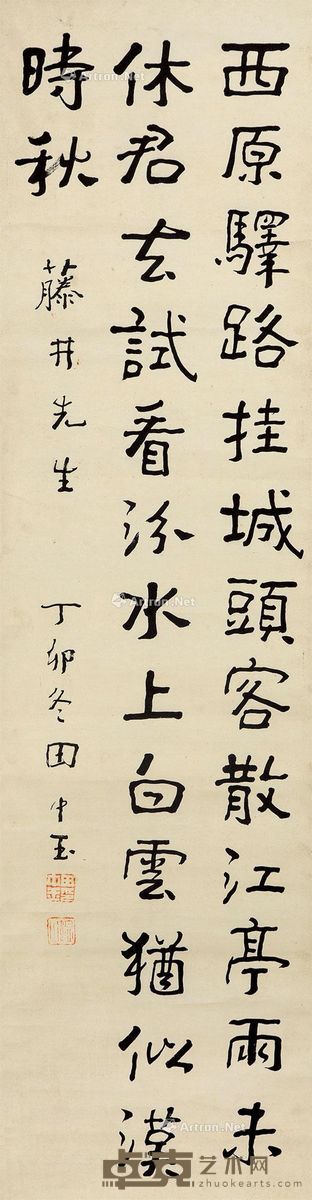 西原驛路挂城頭客散江亭雨未
休君去試看汾水上白雲猶似漢
時秋
藤井先生 丁卯冬田中玉
Artron.Net
卓克艺术网
zhuokearts.com